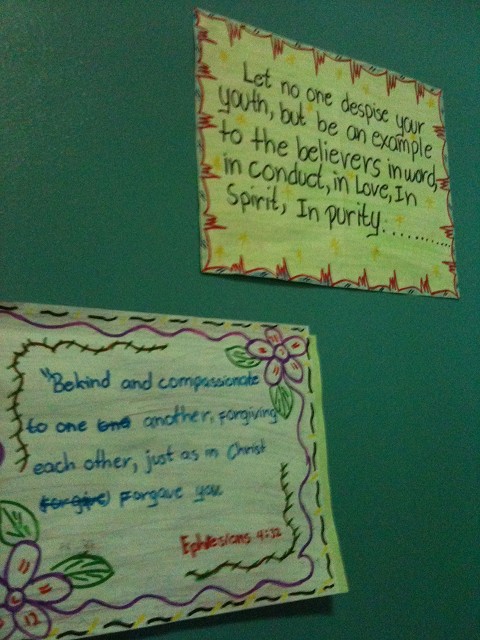 Let no one despise your
youth, but be an example
to the believers in word,
in conduct, in Love, In
Spirit, In purity...........
"Bekind and compassionate
to one and another, forgiving
each other, just as in Christ
forgive) Forgave you
Ephesians 4:32
12